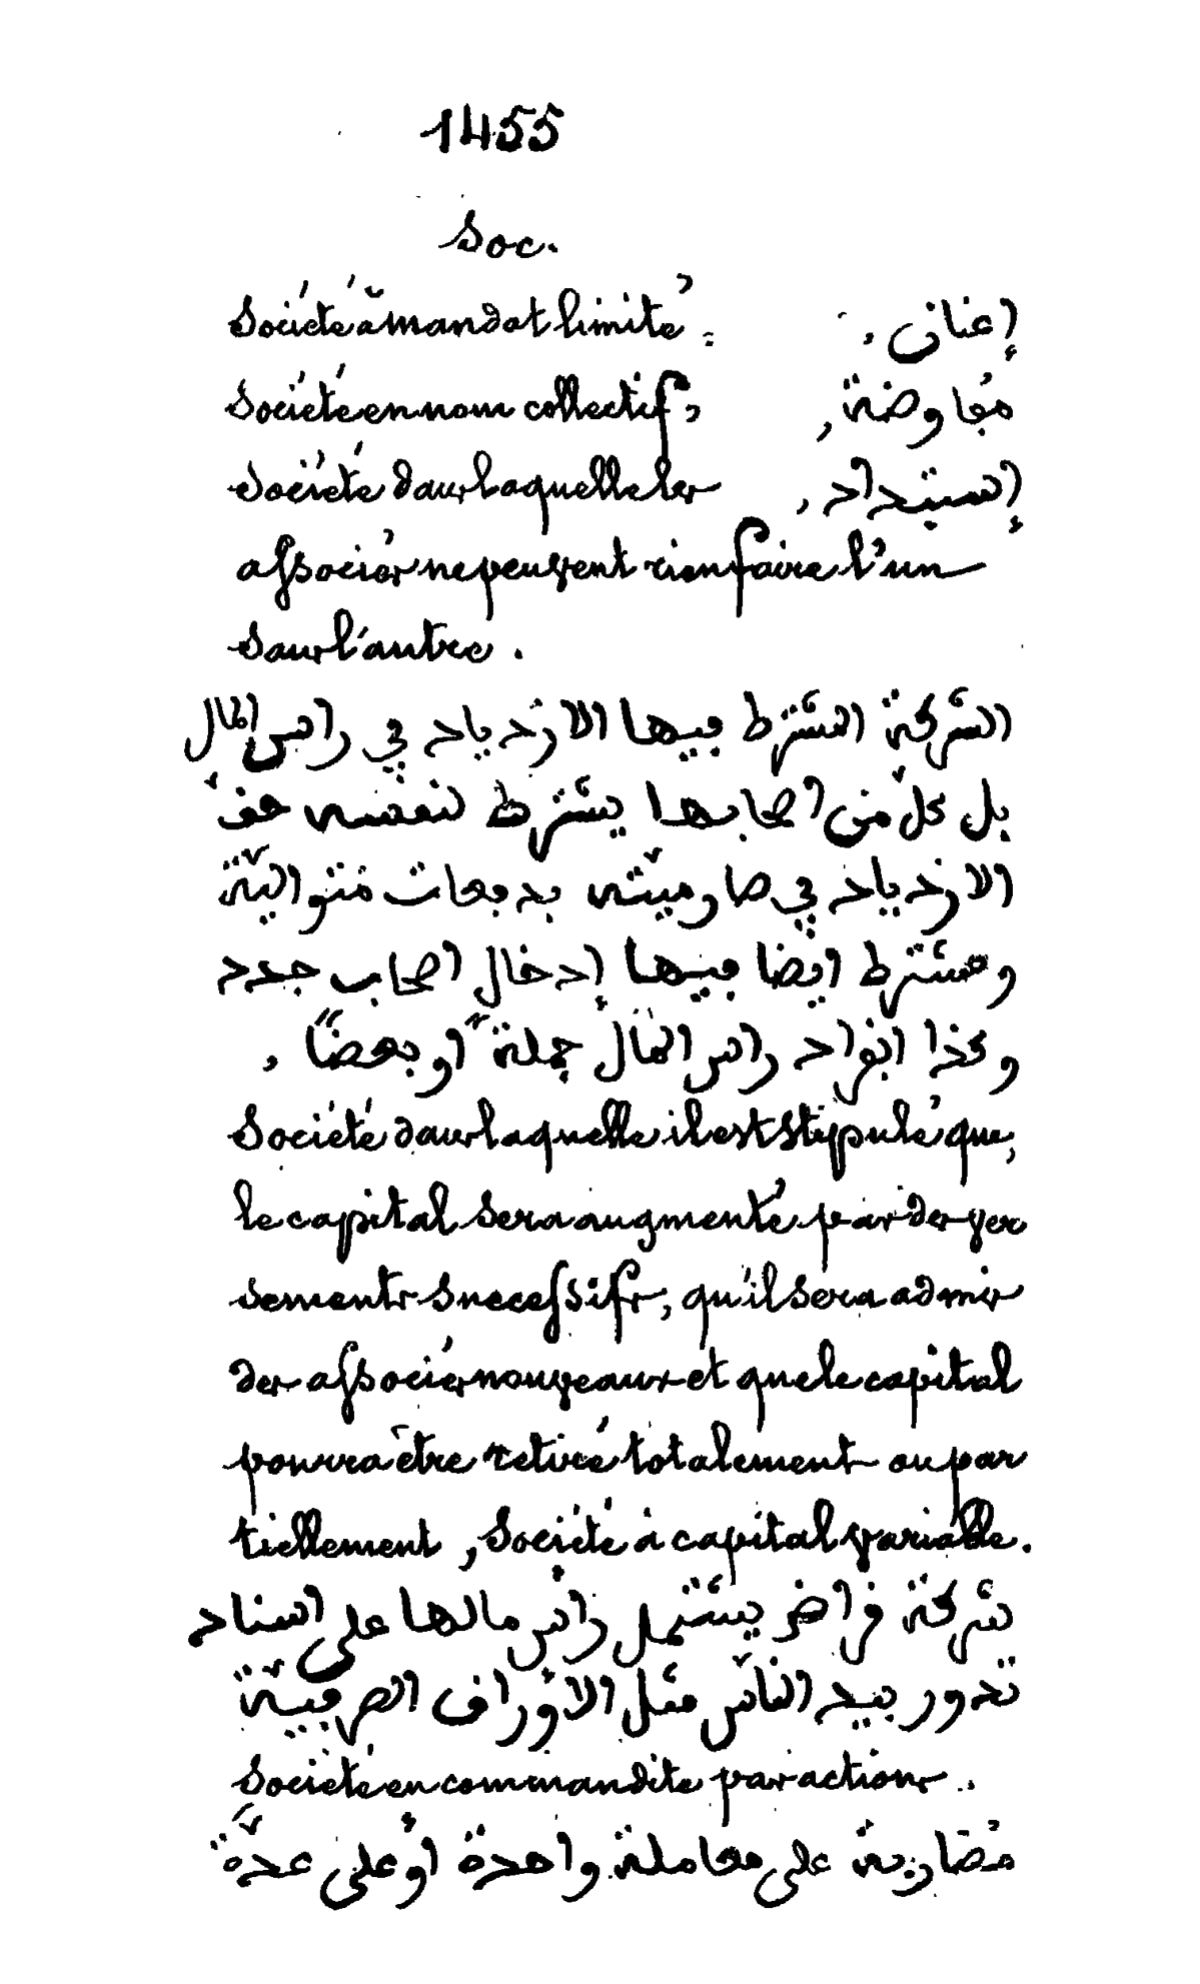 1455
Soc.
Société à mandat limité, إعنان,
Société en nom collectif, مُفاوضة,
Société dans laquelle les إستبداد,
associés ne peuvent rien faire l'un
sans l'autre.
الشركة المشترط فيها الازدياد في راس المال
بل كلّ من اصحابها يشترط لنفسه حقّ
الازدياد في صارميّته بدفعات مُتواليّة
ومشترط ايضا فيها إدخال اصحاب جدد
وكذا راس المال جملةً او بعضًا,
Société dans laquelle il est stipulé que,
le capital sera augmenté par des ver
sements successifs, qu'il sera admis
des associés nouveaux et que le capital
pourra être retiré totalement ou par
tiellement, Société à capital variable.
شركة فراض يشتمل رأس مالها على اسناد
تدور بيد النّاس مثل الأوراق الصرفيّة
Société en commandite par actions.
مُضاربة على معاملة واحدة أو على عدّةً